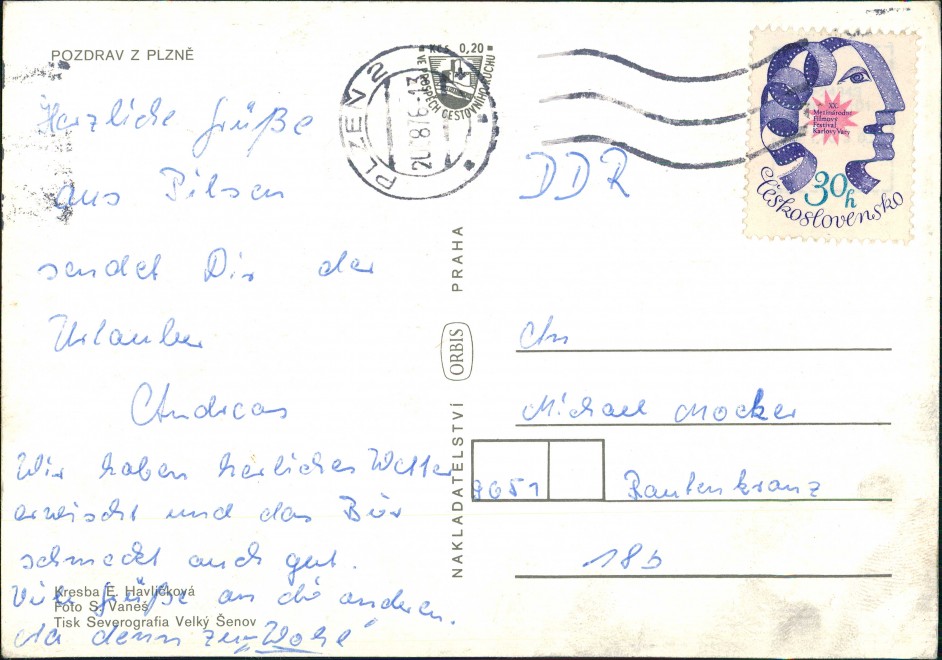 POZDRAV Z PLZNĚ
Herzliche Grüße
aus Pilsen
sendet Dir der
Urlauber
Andreas
Wir haben herliches Wetter
erwischt und das Bier
schmeckt auch gut.
Viele Grüße an die anderen.
na denn zum Wohle
Kresba E. Havlíčková
Foto S. Vaneš
Tisk Severografia Velký Šenov
NAKLADATELSTVÍ ORBIS PRAHA
PLZEŇ 2
20.8.76-13
Kčs 0,20
VE PROSPĚCH CESTOVNÍHO RUCHU
XX.
Mezinárodní
Filmový
Festival
Karlovy Vary
30h
Československo
DDR
An
Michael Mocker
9651 Rautenkranz
18b